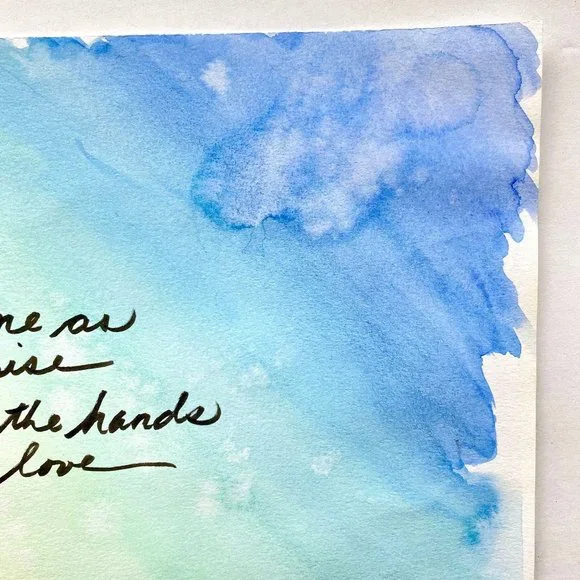 ne as
ise
the hands
love